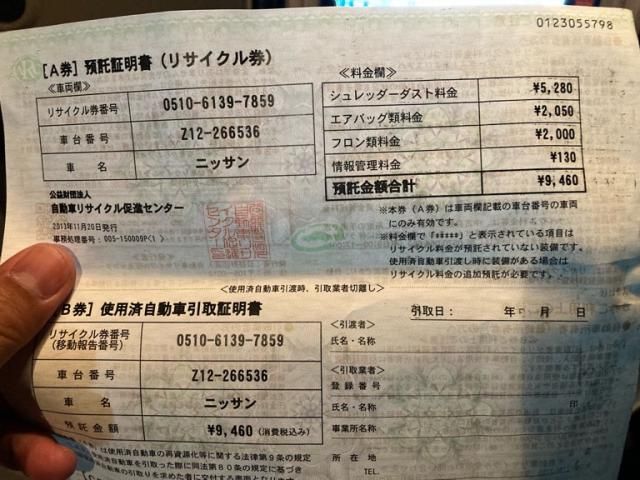 0123055798
[A券] 預託証明書(リサイクル券)
≪車両欄≫
リサイクル券番号 0510-6139-7859
車台番号 Z12-266536
車名 ニッサン
≪料金欄≫
シュレッダーダスト料金 ¥5,280
エアバッグ類料金 ¥2,050
フロン類料金 ¥2,000
情報管理料金 ¥130
預託金額合計 ¥9,460
公益財団法人
自動車リサイクル促進センター
2013年11月20日発行
事務処理番号:005-150009P(1 )
※本券(A券)は車両欄記載の車台番号の車両
にのみ有効です。
※料金欄で「*****」と表示されている項目は
リサイクル料金が預託されていない装備です。
使用済自動車引渡し時に装備がある場合は
リサイクル料金の追加預託が必要です。
<使用済自動車引渡時、引取業者切離し>
B券] 使用済自動車引取証明書
引取日: 年 月 日
リサイクル券番号
(移動報告番号) 0510-6139-7859
車台番号 Z12-266536
車名 ニッサン
預託金額 ¥9,460 (消費税込み)
≪引渡者≫
氏名・名称
≪引取業者≫
登録番号
氏名・名称 印
事業所名称
所在地
TEL.
は使用済自動車の再資源化等に関する法律第9条の規定
動車を引取った際に同法第80条の規定に基づき
動車の引取りを求めた者に交付する書面となります